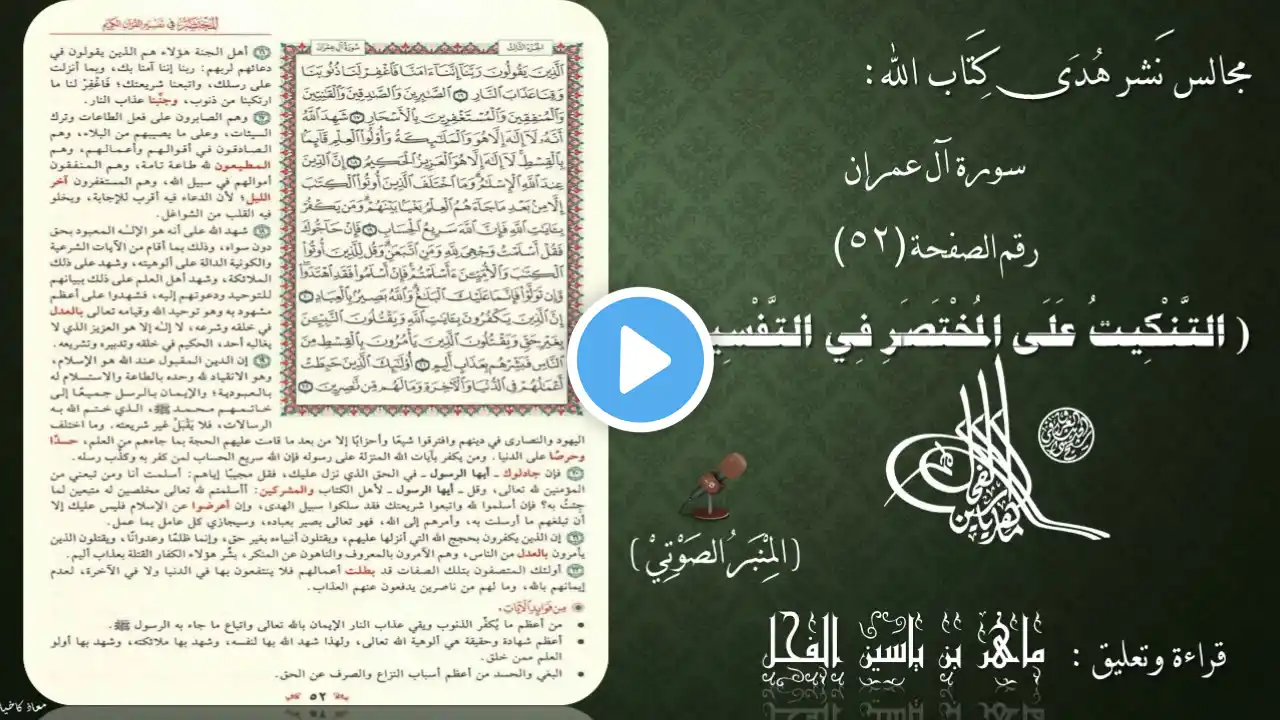 مجالس نَشر هُدَى كِتَاب الله:
سورة آل عمران
رقم الصفحة (٥٢)
( التَّنْكِيتُ عَلَى المُخْتَصَرِ فِي التَّفْسِي
(المِنْبَرُ الصَوْتِيّ)
قراءة وتعليق : ماهر بن ياسين الفحل
المختصر في تفسير القرآن الكريم
الجزء الثالث
سورة آل عمران
الَّذِينَ يَقُولُونَ رَبَّنَا إِنَّنَا ءَامَنَّا فَاغْفِرْ لَنَا ذُنُوبَنَا
وَقِنَا عَذَابَ النَّارِ ١٦ الصَّابِرِينَ وَالصَّادِقِينَ وَالْقَانِتِينَ
وَالْمُنفِقِينَ وَالْمُسْتَغْفِرِينَ بِالْأَسْحَارِ ١٧ شَهِدَ اللَّهُ
أَنَّهُ لَا إِلَٰهَ إِلَّا هُوَ وَالْمَلَائِكَةُ وَأُولُوا الْعِلْمِ قَائِمًا
بِالْقِسْطِ لَا إِلَٰهَ إِلَّا هُوَ الْعَزِيزُ الْحَكِيمُ ١٨ إِنَّ الدِّينَ
عِندَ اللَّهِ الْإِسْلَامُ وَمَا اخْتَلَفَ الَّذِينَ أُوتُوا الْكِتَابَ
إِلَّا مِن بَعْدِ مَا جَاءَهُمُ الْعِلْمُ بَغْيًا بَيْنَهُمْ وَمَن يَكْفُرْ
بِآيَاتِ اللَّهِ فَإِنَّ اللَّهَ سَرِيعُ الْحِسَابِ ١٩ فَإِنْ حَاجُّوكَ
فَقُلْ أَسْلَمْتُ وَجْهِيَ لِلَّهِ وَمَنِ اتَّبَعَنِ وَقُل لِّلَّذِينَ أُوتُوا
الْكِتَابَ وَالْأُمِّيِّينَ ءَأَسْلَمْتُمْ فَإِنْ أَسْلَمُوا فَقَدِ اهْتَدَوا
وَّإِن تَوَلَّوْا فَإِنَّمَا عَلَيْكَ الْبَلَاغُ وَاللَّهُ بَصِيرٌ بِالْعِبَادِ ٢٠
إِنَّ الَّذِينَ يَكْفُرُونَ بِآيَاتِ اللَّهِ وَيَقْتُلُونَ النَّبِيِّينَ
بِغَيْرِ حَقٍّ وَيَقْتُلُونَ الَّذِينَ يَأْمُرُونَ بِالْقِسْطِ مِنَ
النَّاسِ فَبَشِّرْهُم بِعَذَابٍ أَلِيمٍ ٢١ أُولَٰئِكَ الَّذِينَ حَبِطَتْ
أَعْمَالُهُمْ فِي الدُّنْيَا وَالْآخِرَةِ وَمَا لَهُم مِّن نَّاصِرِينَ ٢٢
١٦ أهل الجنة هؤلاء هم الذين يقولون في
دعائهم لربهم: ربنا إننا آمنا بك، وبما أنزلت
على رسلك، واتبعنا شريعتك؛ فَاغْفِرْ لنا ما
ارتكبنا من ذنوب، وجنِّبنا عذاب النار.
١٧ وهم الصابرون على فعل الطاعات وترك
السيئات، وعلى ما يصيبهم من البلاء، وهم
الصادقون في أقوالهم وأعمالهم، وهم
المطيعون لله طاعة تامة، وهم المنفقون
أموالهم في سبيل الله، وهم المستغفرون آخر
الليل؛ لأن الدعاء فيه أقرب للإجابة، ويخلو
فيه القلب من الشواغل.
١٨ شهد الله على أنه هو الإلٰه المعبود بحق
دون سواه، وذلك بما أقام من الآيات الشرعية
والكونية الدالة على ألوهيته، وشهد على ذلك
الملائكة، وشهد أهل العلم على ذلك ببيانهم
للتوحيد ودعوتهم إليه، فشهدوا على أعظم
مشهود به وهو توحيد الله وقيامه تعالى بالعدل
في خلقه وشرعه، لا إلٰه إلا هو العزيز الذي لا
يغالبه أحد، الحكيم في خلقه وتدبيره وتشريعه.
١٩ إن الدين المقبول عند الله هو الإسلام،
وهو الانقياد لله وحده بالطاعة والاستسلام له
بالعبودية؛ والإيمان بالرسل جميعًا إلى
خاتمهم محمد ﷺ، الذي ختم الله به
الرسالات، فلا يَقْبَلُ غير شريعته. وما اختلف
اليهود والنصارى في دينهم وافترقوا شيعًا وأحزابًا إلا من بعد ما قامت عليهم الحجة بما جاءهم من العلم، حسدًا
وحرصًا على الدنيا. ومن يكفر بآيات الله المنزلة على رسوله فإن الله سريع الحساب لمن كفر به وكذَّب رسله.
٢٠ فإن جادلوك ـ أيها الرسول ـ في الحق الذي نزل عليك، فقل مجيبًا إياهم: أسلمت أنا ومن تبعني من
المؤمنين لله تعالى، وقل ـ أيها الرسول ـ لأهل الكتاب والمشركين: أأسلمتم لله تعالى مخلصين له متبعين لما
جئتُ به؟ فإن أسلموا لله واتبعوا شريعتك فقد سلكوا سبيل الهدى، وإن أعرضوا عن الإسلام فليس عليك إلا
أن تبلغهم ما أرسلت به، وأمرهم إلى الله، فهو تعالى بصير بعباده، وسيجازي كل عامل بما عمل.
٢١ إن الذين يكفرون بحجج الله التي أنزلها عليهم، ويقتلون أنبياءه بغير حق، وإنما ظلمًا وعدوانًا، ويقتلون الذين
يأمرون بالعدل من الناس، وهم الآمرون بالمعروف والناهون عن المنكر، بشِّر هؤلاء الكفار القتلة بعذاب أليم.
٢٢ أولئك المتصفون بتلك الصفات قد بطلت أعمالهم فلا ينتفعون بها في الدنيا ولا في الآخرة، لعدم
إيمانهم بالله، وما لهم من ناصرين يدفعون عنهم العذاب.
من فوائد الآيات:
• من أعظم ما يُكفِّر الذنوب ويقي عذاب النار الإيمان بالله تعالى واتباع ما جاء به الرسول ﷺ.
• أعظم شهادة وحقيقة هي ألوهية الله تعالى، ولهذا شهد الله بها لنفسه، وشهد بها ملائكته، وشهد بها أولو
العلم ممن خلق.
• البغي والحسد من أعظم أسباب النزاع والصرف عن الحق.
٥٢